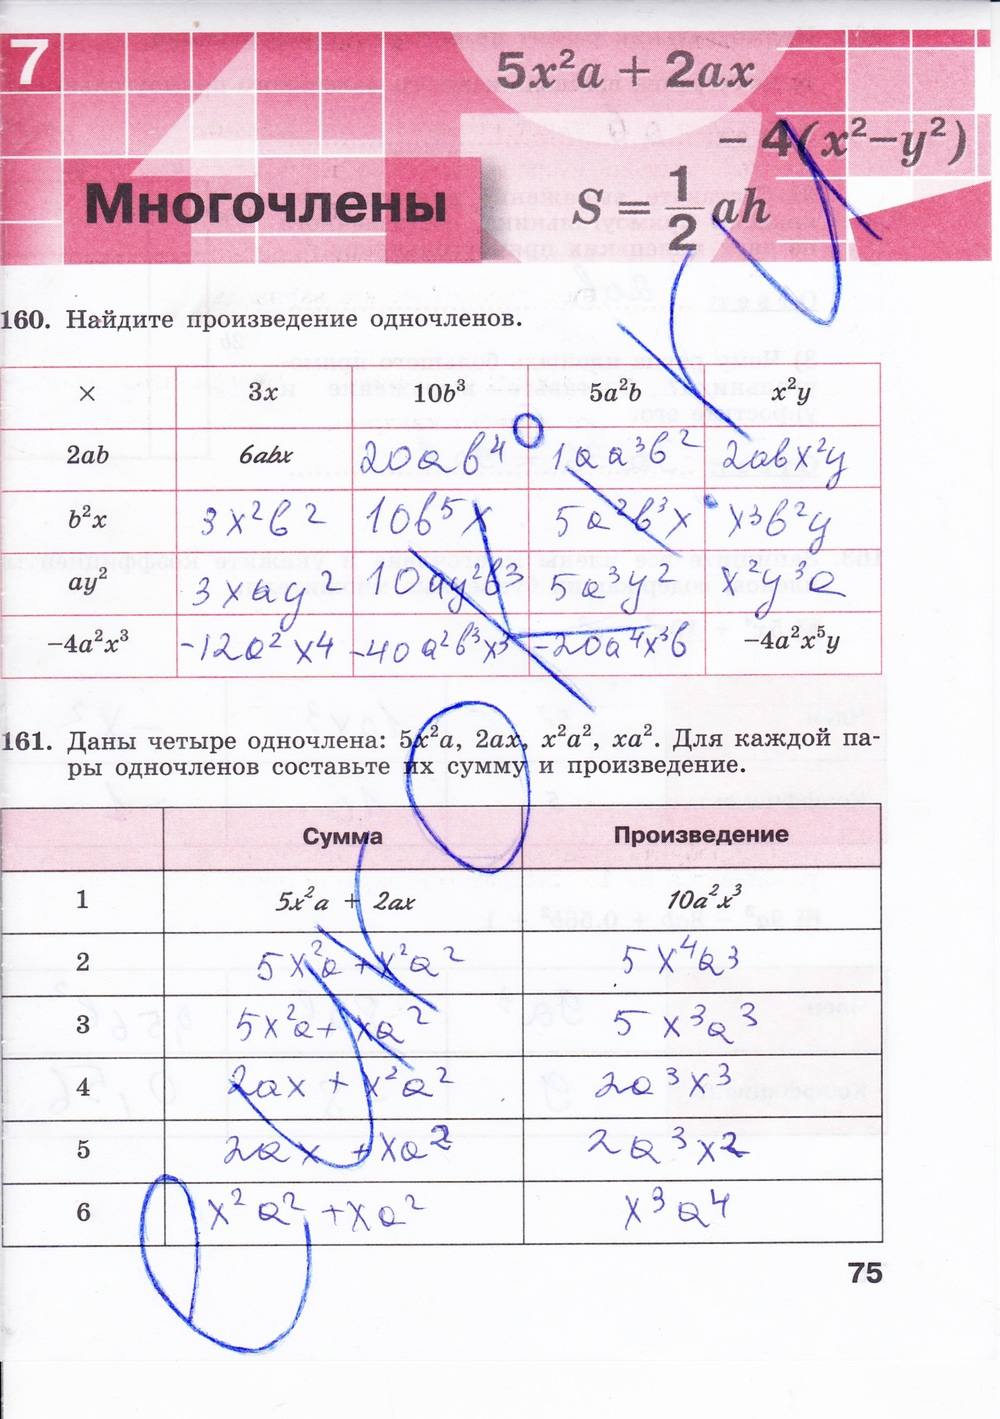 7
5x²a + 2ax
– 4(x²–y²)
Многочлены
S = 1/2 ah
160. Найдите произведение одночленов.
× 3x 10b³ 5a²b x²y
2ab 6abx 20ab⁴ 10a³b² 2abx²y
b²x 3x²b² 10b⁵x 5a²b³x x³b²y
ay² 3xay² 10ay²b³ 5a³y² x²y³a
–4a²x³ -12a²x⁴ -40a²b³x³ -20a⁴x³b –4a²x⁵y
161. Даны четыре одночлена: 5x²a, 2ax, x²a², xa². Для каждой па-
ры одночленов составьте их сумму и произведение.
Сумма Произведение
1 5x²a + 2ax 10a²x³
2 5x²a+x²a² 5x⁴a³
3 5x²a+xa² 5x³a³
4 2ax + x²a² 2a³x³
5 2ax +xa² 2a³x²
6 x²a² +xa² x³a⁴
75